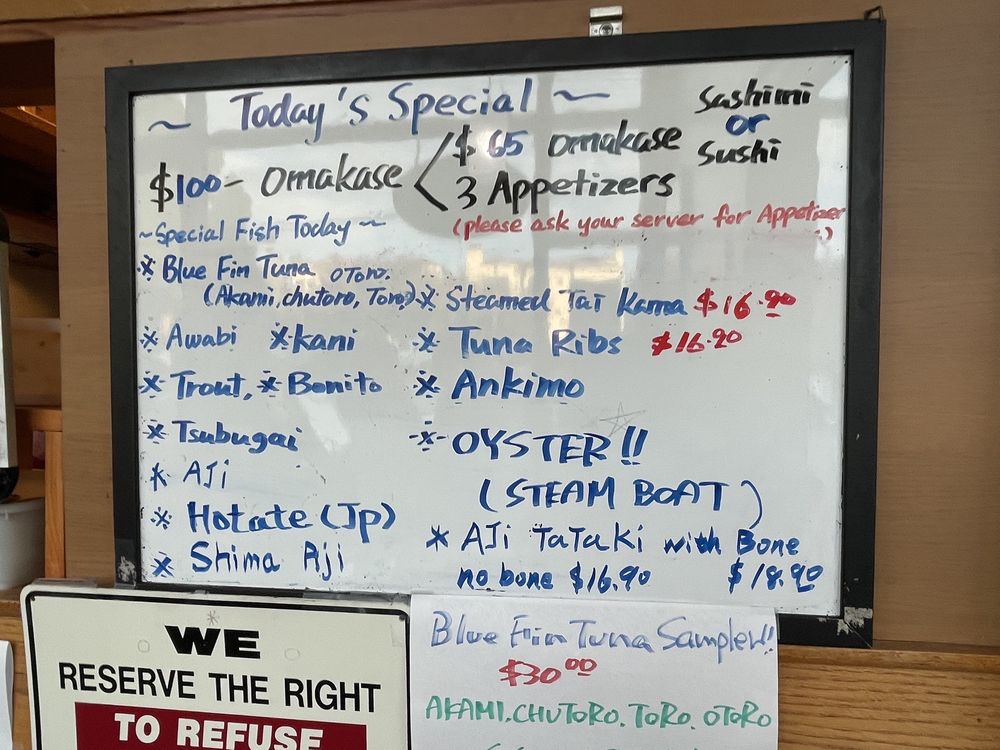 ~ Today's Special ~
Sashimi
or
Sushi
$100- Omakase < $65 Omakase
3 Appetizers
(please ask your server for Appetizer
!)
~Special Fish Today~
※ Blue Fin Tuna OTORO.
(Akami.chutoro, Toro)
※ Awabi ※ kani
※ Trout, ※ Bonito
※ Tsubugai
※ AJi
※ Hotate (Jp)
※ Shima Aji
※ Steamed Tai Kama $16.90
※ Tuna Ribs $16.90
※ Ankimo
※ OYSTER!!
(STEAM BOAT)
※ AJi TaTaKi with Bone
no bone $16.90 $18.90
WE
RESERVE THE RIGHT
TO REFUSE
Blue Fin Tuna Sampler!!
$30.00
AKAMI.CHUTORO.TORO.OTORO